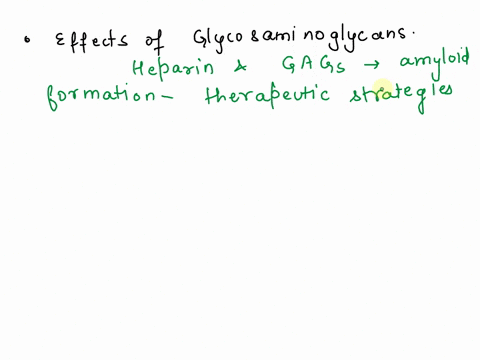 • Effects of Glycosaminoglycans.
Heparin & GAGs → amyloid
formation - therapeutic strategies